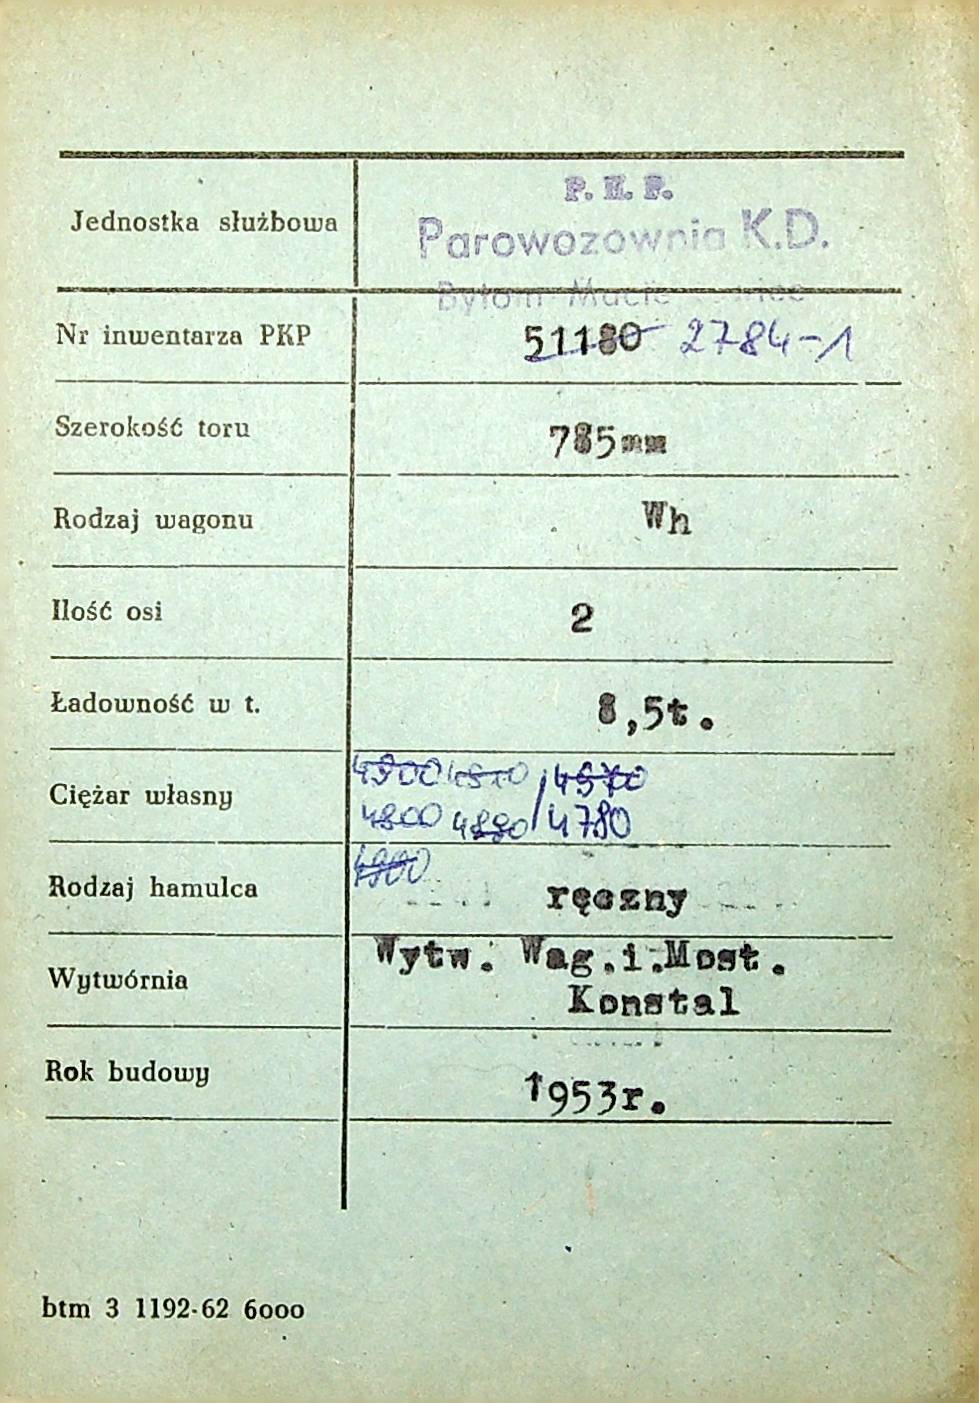 P. K. P.
Jednostka służbowa Parowozownia K.D.
Bytom
Nr inwentarza PKP 51180 2784-1
Szerokość toru 785mm
Rodzaj wagonu Wh
Ilość osi 2
Ładowność w t. 8,5t.
4900 4810 / 4970
Ciężar własny 4800 4880 / 4780
4900
Rodzaj hamulca ręczny
Wytw. Wag.i.Most.
Wytwórnia Konstal
Rok budowy 1953r.
btm 3 1192-62 6000